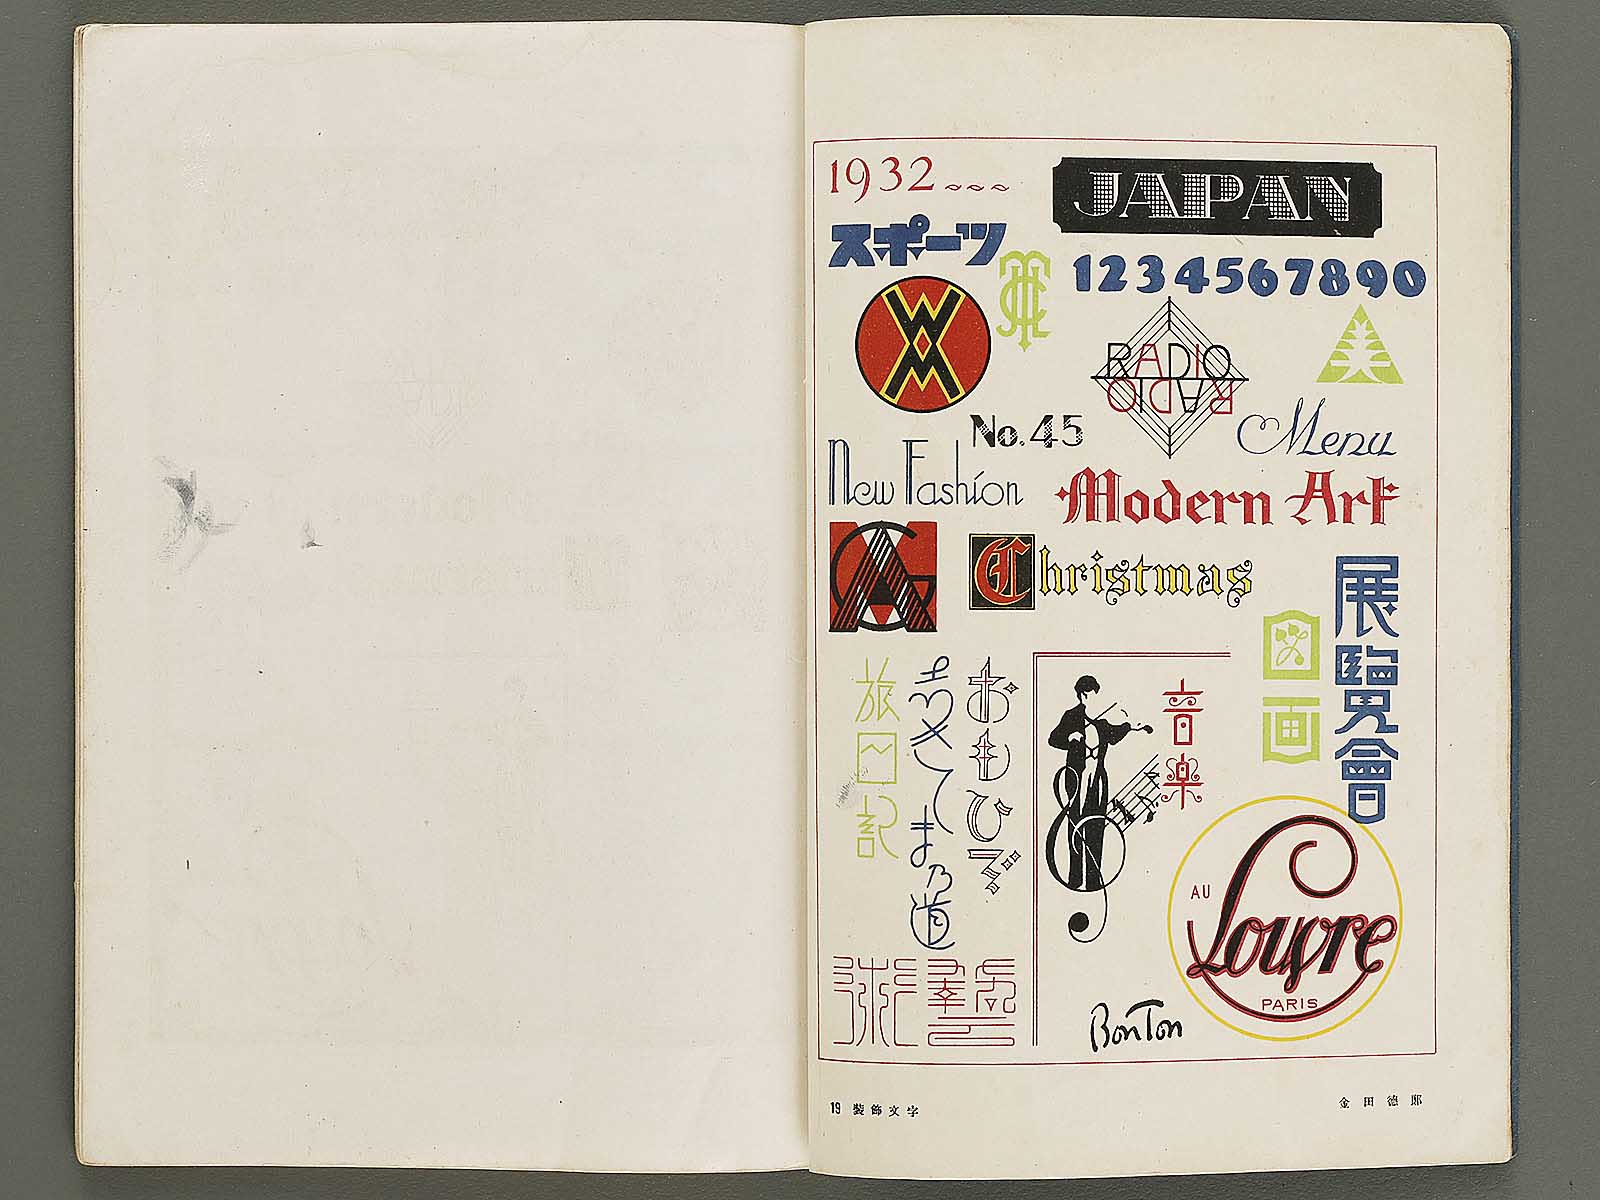 1932
JAPAN
スポーツ
1234567890
WM
RADIO
RADIO
美
No.45
Menu
New Fashion
Modern Art
Christmas
展覽會
図画
音楽
おもひで
旅日記
藝術
AU
Louvre
PARIS
BonTon
19 裝飾文字
金田德郎